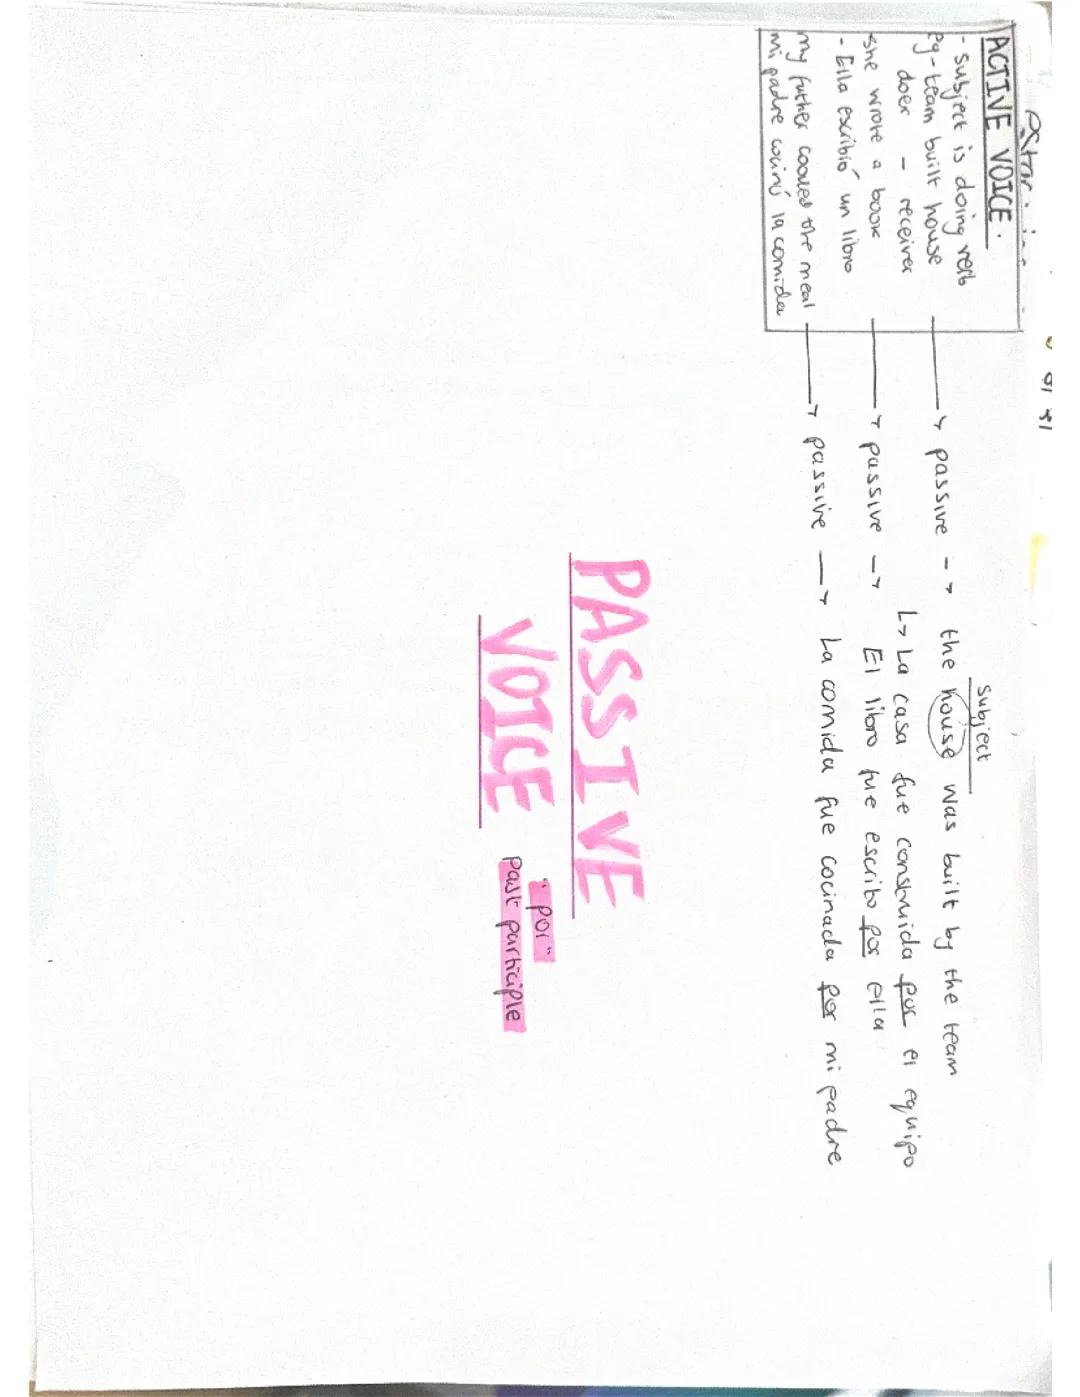 ACTIVE VOICE.
- subject is doing verb
eg - team built house → passive → the house was built by the team
subject
doer - receiver
↳ La casa fue construida por el equipo
she wrote a book → passive → El libro fue escrito por ella
- Ella escribió un libro
my father cooked the meal → passive → La comida fue cocinada por mi padre
mi padre cocinó la comida
PASSIVE
VOICE
"por"
past participle